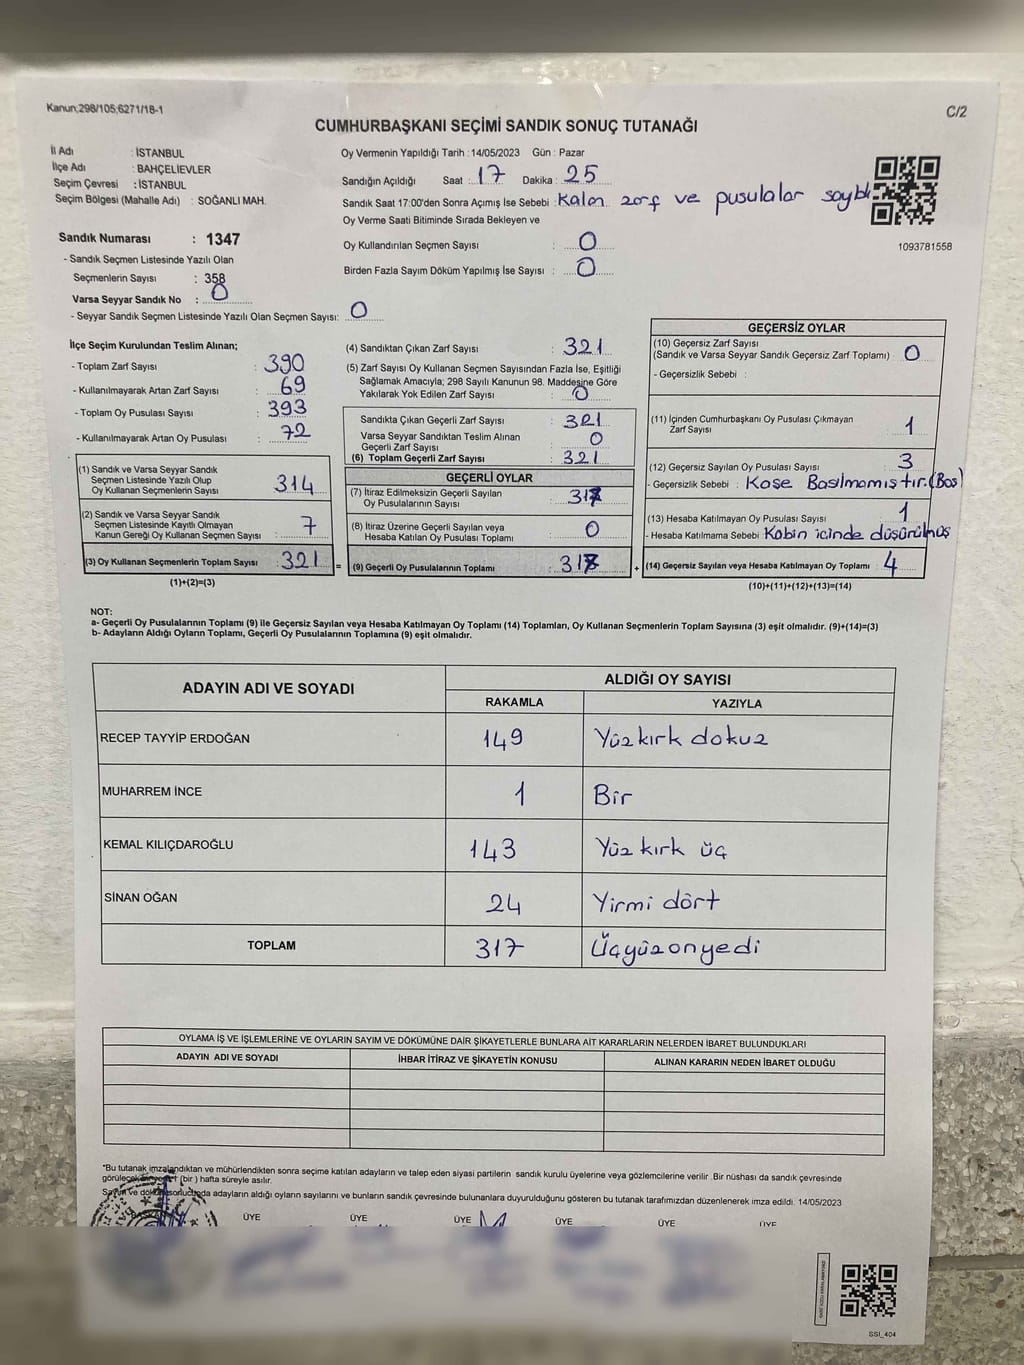 Kanun;298/105;6271/18-1
C/2
CUMHURBAŞKANI SEÇİMİ SANDIK SONUÇ TUTANAĞI
İl Adı : İSTANBUL
İlçe Adı : BAHÇELİEVLER
Seçim Çevresi : İSTANBUL
Seçim Bölgesi (Mahalle Adı) : SOĞANLI MAH.
Oy Vermenin Yapıldığı Tarih : 14/05/2023 Gün : Pazar
Sandığın Açıldığı Saat : 17 Dakika : 25
Sandık Saat 17:00'den Sonra Açımış İse Sebebi : Kalan zarf ve pusulalar
Oy Verme Saati Bitiminde Sırada Bekleyen ve
Oy Kullandırılan Seçmen Sayısı : 0
Birden Fazla Sayım Döküm Yapılmış İse Sayısı : 0
1093781558
Sandık Numarası : 1347
- Sandık Seçmen Listesinde Yazılı Olan
Seçmenlerin Sayısı : 358
Varsa Seyyar Sandık No : 0
- Seyyar Sandık Seçmen Listesinde Yazılı Olan Seçmen Sayısı: 0
İlçe Seçim Kurulundan Teslim Alınan;
- Toplam Zarf Sayısı : 390
- Kullanılmayarak Artan Zarf Sayısı : 69
- Toplam Oy Pusulası Sayısı : 393
- Kullanılmayarak Artan Oy Pusulası : 72
(1) Sandık ve Varsa Seyyar Sandık
Seçmen Listesinde Yazılı Olup
Oy Kullanan Seçmenlerin Sayısı : 314
(2) Sandık ve Varsa Seyyar Sandık
Seçmen Listesinde Kayıtlı Olmayan
Kanun Gereği Oy Kullanan Seçmen Sayısı : 7
(3) Oy Kullanan Seçmenlerin Toplam Sayısı : 321
(1)+(2)=(3)
(4) Sandıktan Çıkan Zarf Sayısı : 321
(5) Zarf Sayısı Oy Kullanan Seçmen Sayısından Fazla İse, Eşitliği
Sağlamak Amacıyla; 298 Sayılı Kanunun 98. Maddesine Göre
Yakılarak Yok Edilen Zarf Sayısı : 0
Sandıkta Çıkan Geçerli Zarf Sayısı : 321
Varsa Seyyar Sandıktan Teslim Alınan
Geçerli Zarf Sayısı : 0
(6) Toplam Geçerli Zarf Sayısı : 321
GEÇERLİ OYLAR
(7) İtiraz Edilmeksizin Geçerli Sayılan
Oy Pusulalarının Sayısı : 317
(8) İtiraz Üzerine Geçerli Sayılan veya
Hesaba Katılan Oy Pusulası Toplamı : 0
= (9) Geçerli Oy Pusulalarının Toplamı : 317 +
GEÇERSİZ OYLAR
(10) Geçersiz Zarf Sayısı
(Sandık ve Varsa Seyyar Sandık Geçersiz Zarf Toplamı) : 0
- Geçersizlik Sebebi :
(11) İçinden Cumhurbaşkanı Oy Pusulası Çıkmayan
Zarf Sayısı : 1
(12) Geçersiz Sayılan Oy Pusulası Sayısı : 3
- Geçersizlik Sebebi : Kaşe Basılmamıştır.(Boş)
(13) Hesaba Katılmayan Oy Pusulası Sayısı : 1
- Hesaba Katılmama Sebebi : Kabin içinde düşürülmüş
(14) Geçersiz Sayılan veya Hesaba Katılmayan Oy Toplamı : 4
(10)+(11)+(12)+(13)=(14)
NOT:
a- Geçerli Oy Pusulalarının Toplamı (9) ile Geçersiz Sayılan veya Hesaba Katılmayan Oy Toplamı (14) Toplamları, Oy Kullanan Seçmenlerin Toplam Sayısına (3) eşit olmalıdır. (9)+(14)=(3)
b- Adayların Aldığı Oyların Toplamı, Geçerli Oy Pusulalarının Toplamına (9) eşit olmalıdır.
ADAYIN ADI VE SOYADI
ALDIĞI OY SAYISI
RAKAMLA YAZIYLA
RECEP TAYYİP ERDOĞAN 149 Yüzkırk dokuz
MUHARREM İNCE 1 Bir
KEMAL KILIÇDAROĞLU 143 Yüz kırk üç
SİNAN OĞAN 24 Yirmi dört
TOPLAM 317 Üçyüzonyedi
OYLAMA İŞ VE İŞLEMLERİNE VE OYLARIN SAYIM VE DÖKÜMÜNE DAİR ŞİKAYETLERLE BUNLARA AİT KARARLARIN NELERDEN İBARET BULUNDUKLARI
ADAYIN ADI VE SOYADI İHBAR İTİRAZ VE ŞİKAYETİN KONUSU ALINAN KARARIN NEDEN İBARET OLDUĞU
"Bu tutanak imzalandıktan ve mühürlendikten sonra seçime katılan adayların ve talep eden siyasi partilerin sandık kurulu üyelerine veya gözlemcilerine verilir. Bir nüshası da sandık çevresinde
(bir) hafta süreyle asılır.
adayların aldığı oyların sayılarını ve bunların sandık çevresinde bulunanlara duyurulduğunu gösteren bu tutanak tarafımızdan düzenlenerek imza edildi. 14/05/2023
ÜYE ÜYE ÜYE ÜYE ÜYE ÜYE
SSI_404